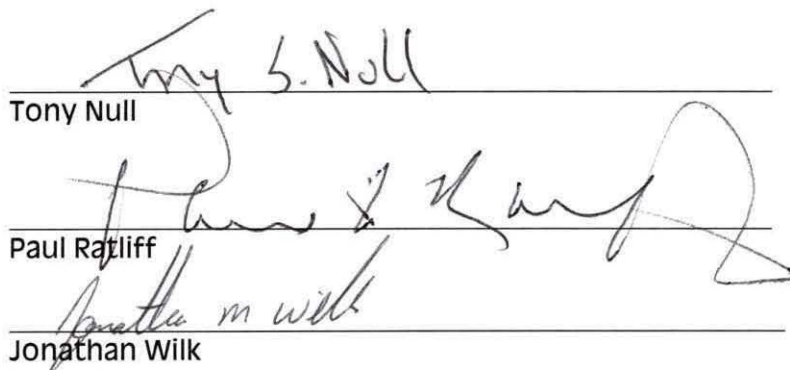 Tony S. Null
Tony Null
Paul Ratliff
Jonathan M Wilk
Jonathan Wilk